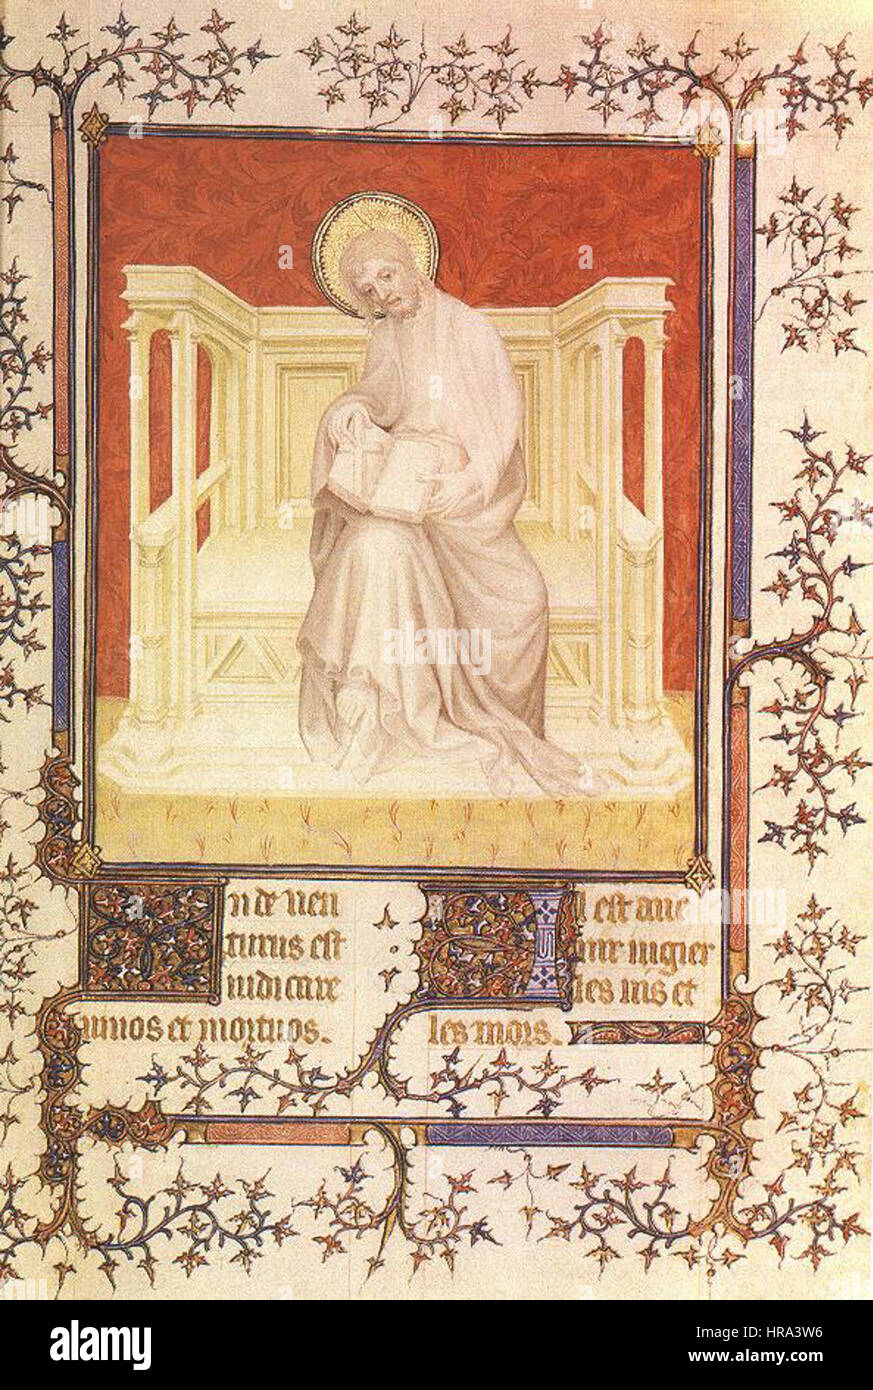 Inde uen
turus est
iudicare
uiuos et mortuos.
Il est aue
nir iugier
les uis et
les mors.
alamy
alamy
Image ID: HRA3W6
www.alamy.com